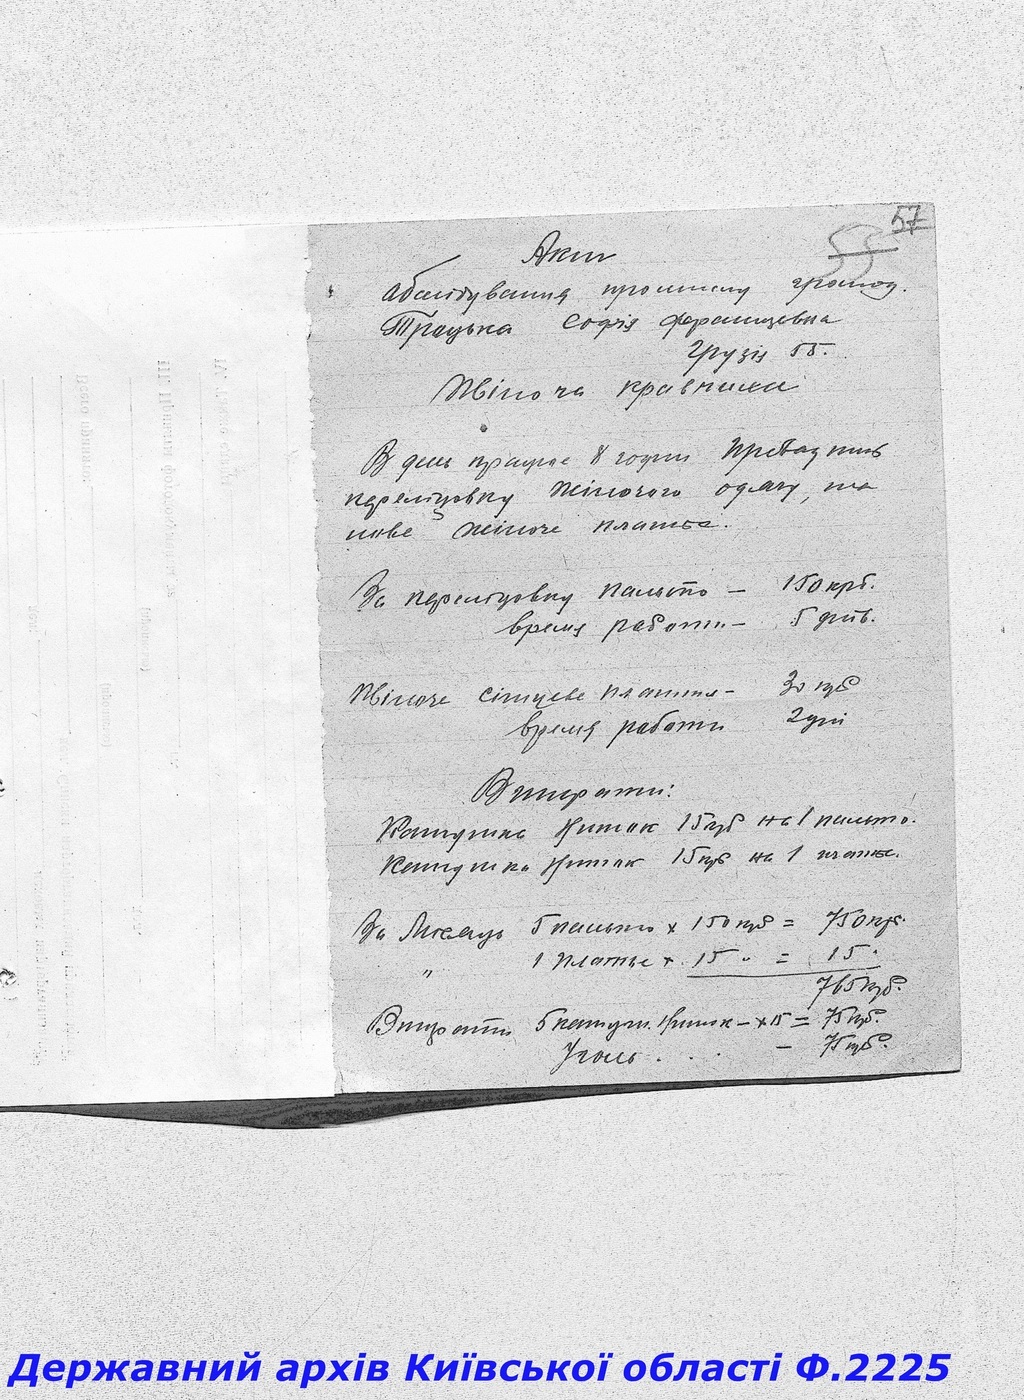 57
55
Акт
абслідування промислу громод.
Трацька Софія Францевна
Грузін 55.
Жіноча кравчиха
В день працює 8 годин
перелицовку жіночого одягу, та
нове жіноче платье.
За перелицовку пальто – 150 крб.
время работи – 5 днів.
Жіноче сітцеве платтья – 30 крб
время работи 2 дні
Витрати:
Катушка Ниток 15 крб на 1 пальто.
Катушка Ниток 15 крб на 1 платье.
За Місяць 5 пальто x 150 крб = 750 крб.
" 1 платье x 15 " = 15 "
765 крб.
Витрати 5 катуш. Ниток – x 15 = 75 крб.
Уголь . . . – 75 крб.
Державний архів Київської області Ф.2225